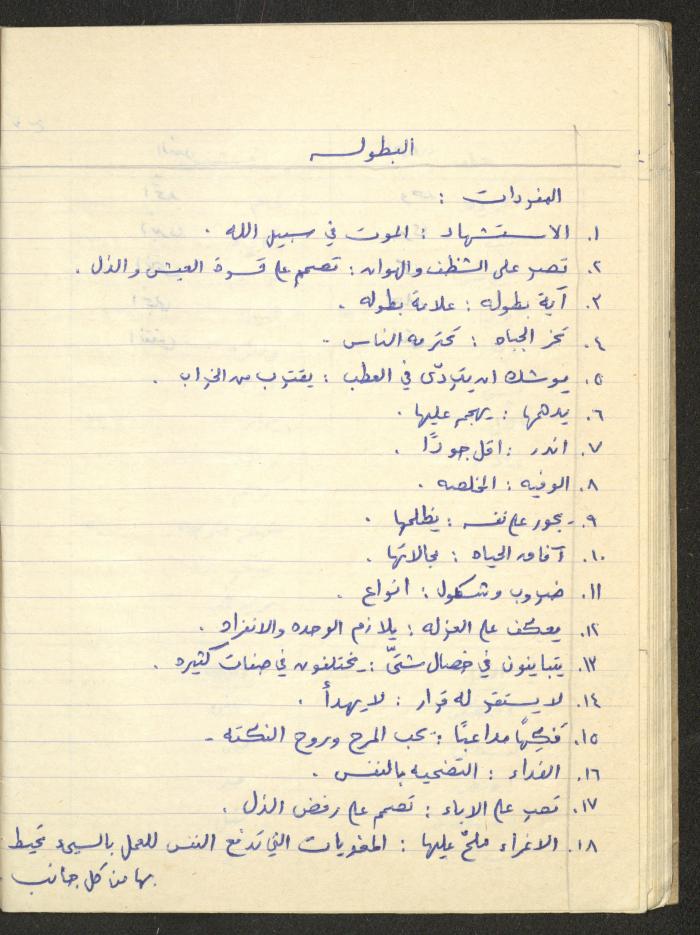 البطوله
المفردات :
١. الاستشهاد : الموت في سبيل الله .
٢. تصبر على الشظف والهوان : تصمم على قسوة العيش والذل .
٣. آية بطوله : علامة بطوله .
٤. تخر الجباه : تحترمه الناس .
٥. يوشك ان يتردّى في العطب : يقترب من الخراب .
٦. يدهمها : يهجم عليها .
٧. اندر : اقل جودًا .
٨. الوفيه : المخلصه .
٩. يجور على نفسه : يظلمها .
١٠. آفاق الحياه : مجالاتها .
١١. ضروب وشكول : انواع .
١٢. يعكف على العزله : يلازم الوحده والانفراد .
١٣. يتباينون في خصال شتىّ : يختلفون في صفات كثيره .
١٤. لا يستقر له قرار : لا يهدأ .
١٥. فَكِهًا مداعبًا : يحب المرح وروح النكته .
١٦. الفداء : التضحيه بالنفس .
١٧. تصبر على الاباء : تصمم على رفض الذل .
١٨. الاغراء ملحٌ عليها : المغويات التي تدفع النفس للعمل بالسيىء تحيط
بها من كل جانب .